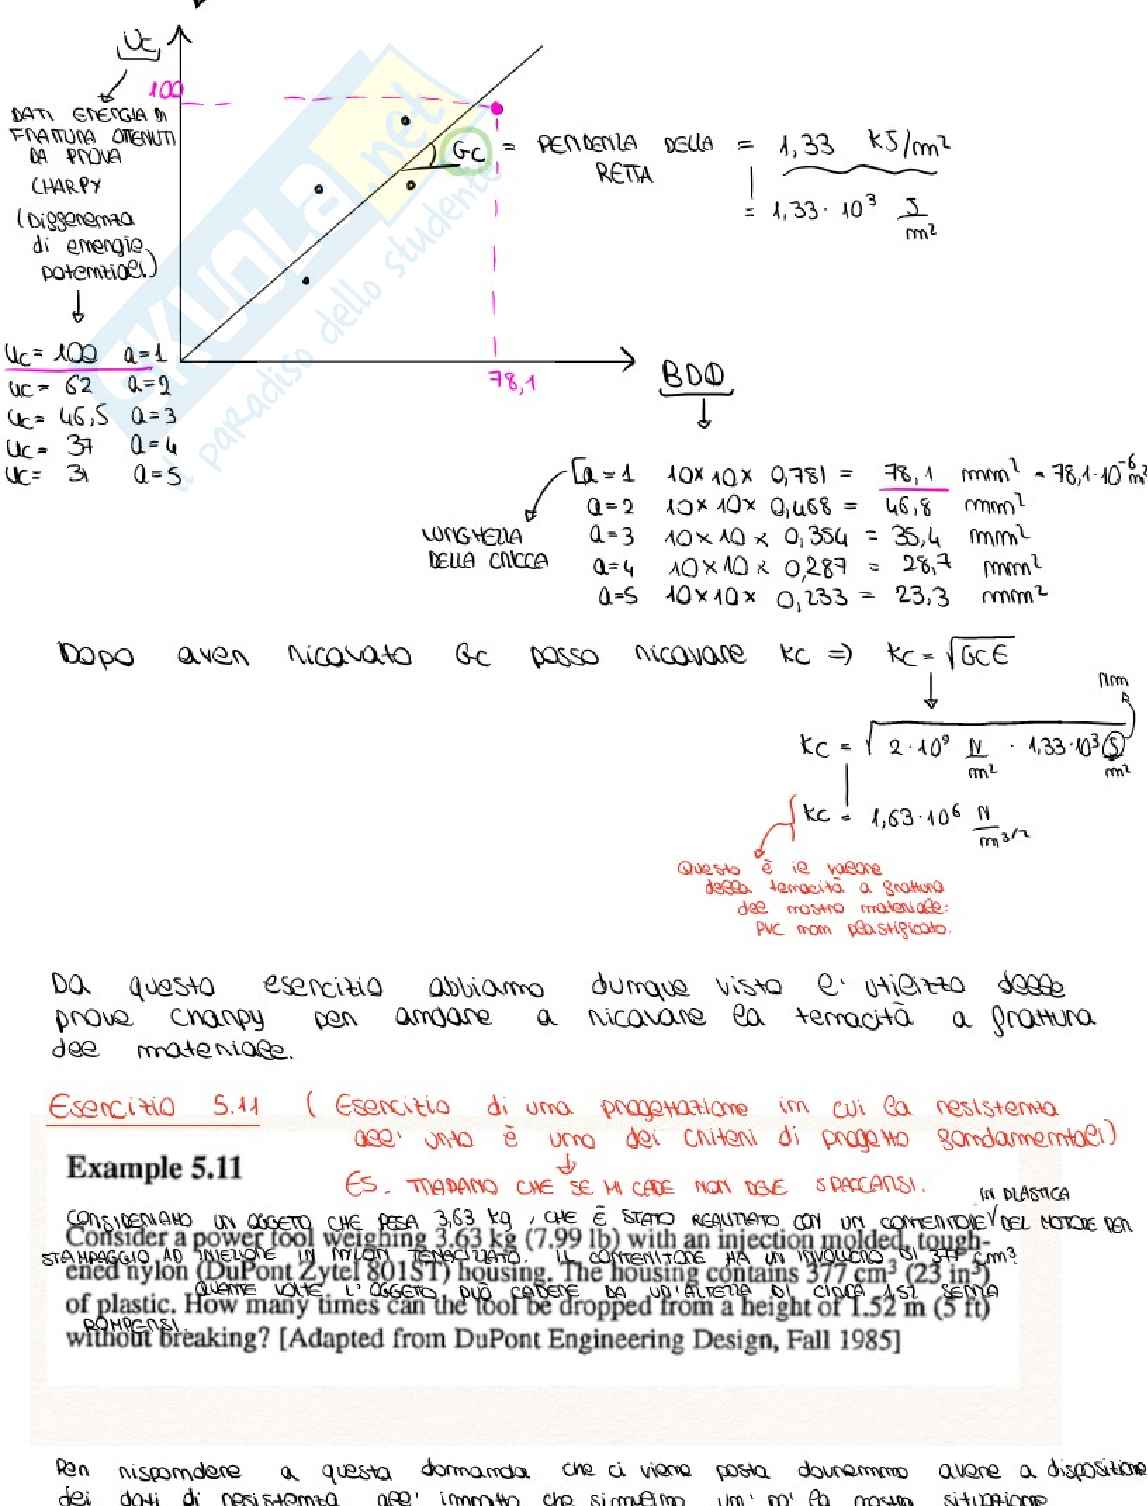 Uc
100
DATI ENERGIA DI
FRATTURA OTTENUTI
DA PROVA
CHARPY
(Differenza
di energie
potenziali)
Gc = PENDENZA DELLA RETTA = 1,33 KJ/m²
= 1,33 · 10³ J/m²
SKUOLA.net
il paradiso dello studente
Uc = 100 a=1
Uc = 62 a=2
Uc = 46,5 a=3
Uc = 37 a=4
Uc = 31 a=5
78,1
BDØ
a=1 10×10×0,781 = 78,1 mm² = 78,1·10⁻⁶ m²
a=2 10×10×0,468 = 46,8 mm²
a=3 10×10×0,354 = 35,4 mm²
a=4 10×10×0,287 = 28,7 mm²
a=5 10×10×0,233 = 23,3 mm²
LUNGHEZZA
DELLA CRICCA
Dopo aver ricavato Gc posso ricavare Kc ⇒ Kc = √GcE
Nm
Kc = √2·10⁹ N/m² · 1,33·10³ J/m²
Kc = 1,63·10⁶ N/m^3/2
Questo è il valore
della tenacità a frattura
del nostro materiale:
PVC non plastificato.
Da questo esercizio abbiamo dunque visto l'utilizzo delle
prove charpy per andare a ricavare la tenacità a frattura
del materiale.
Esercizio 5.11 (Esercizio di una progettazione in cui la resistenza
all'urto è uno dei criteri di progetto fondamentali)
Example 5.11
ES. TRAPANO CHE SE MI CADE NON DEVE SPACCARSI.
IN PLASTICA
CONSIDERIAMO UN OGGETO CHE PESA 3,63 kg, CHE È STATO REALIZZATO CON UN CONTENITORE DEL MOTORE PER
Consider a power tool weighing 3.63 kg (7.99 lb) with an injection molded, tough-
STAMPAGGIO AD INIEZIONE IN NYLON TENACIZZATO. IL CONTENITORE HA UN INVOLUCRO DI 377 cm³
ened nylon (DuPont Zytel 801ST) housing. The housing contains 377 cm³ (23 in³)
QUANTE VOLTE L'OGGETO PUÒ CADERE DA UN'ALTEZZA DI CIRCA 1,52 SENZA
of plastic. How many times can the tool be dropped from a height of 1.52 m (5 ft)
ROMPERSI.
without breaking? [Adapted from DuPont Engineering Design, Fall 1985]
Per rispondere a questa domanda che ci viene posta dovremmo avere a disposizione
dei dati di resistenza all'impatto che simulino un po' la nostra situazione